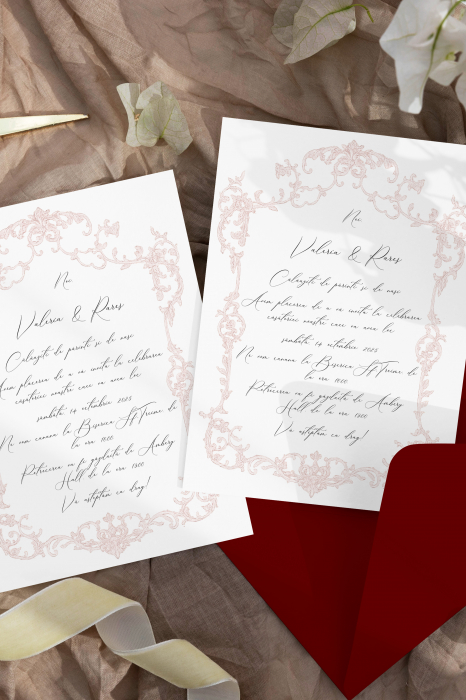 Noi
Valeria & Rares
Calauziti de parinti si de nasi
Avem placerea de a va invita la celebrarea
casatoriei noastre care va avea loc
sambata 14 octombrie 2023
Ne vom cununa la Biserica Sf Treime de
la ora 1600
Petrecerea va fi gazduita de Ambery
Hall de la ora 1900
Va asteptam cu drag!
Noi
Valeria & Rares
Calauziti de parinti si de nasi
Avem placerea de a va invita la celebrarea
casatoriei noastre care va avea loc
sambata 14 octombrie 2023
Ne vom cununa la Biserica Sf Treime de
la ora
Petrecerea va fi gazduita de Ambery
Hall de la ora
Va asteptam cu drag!